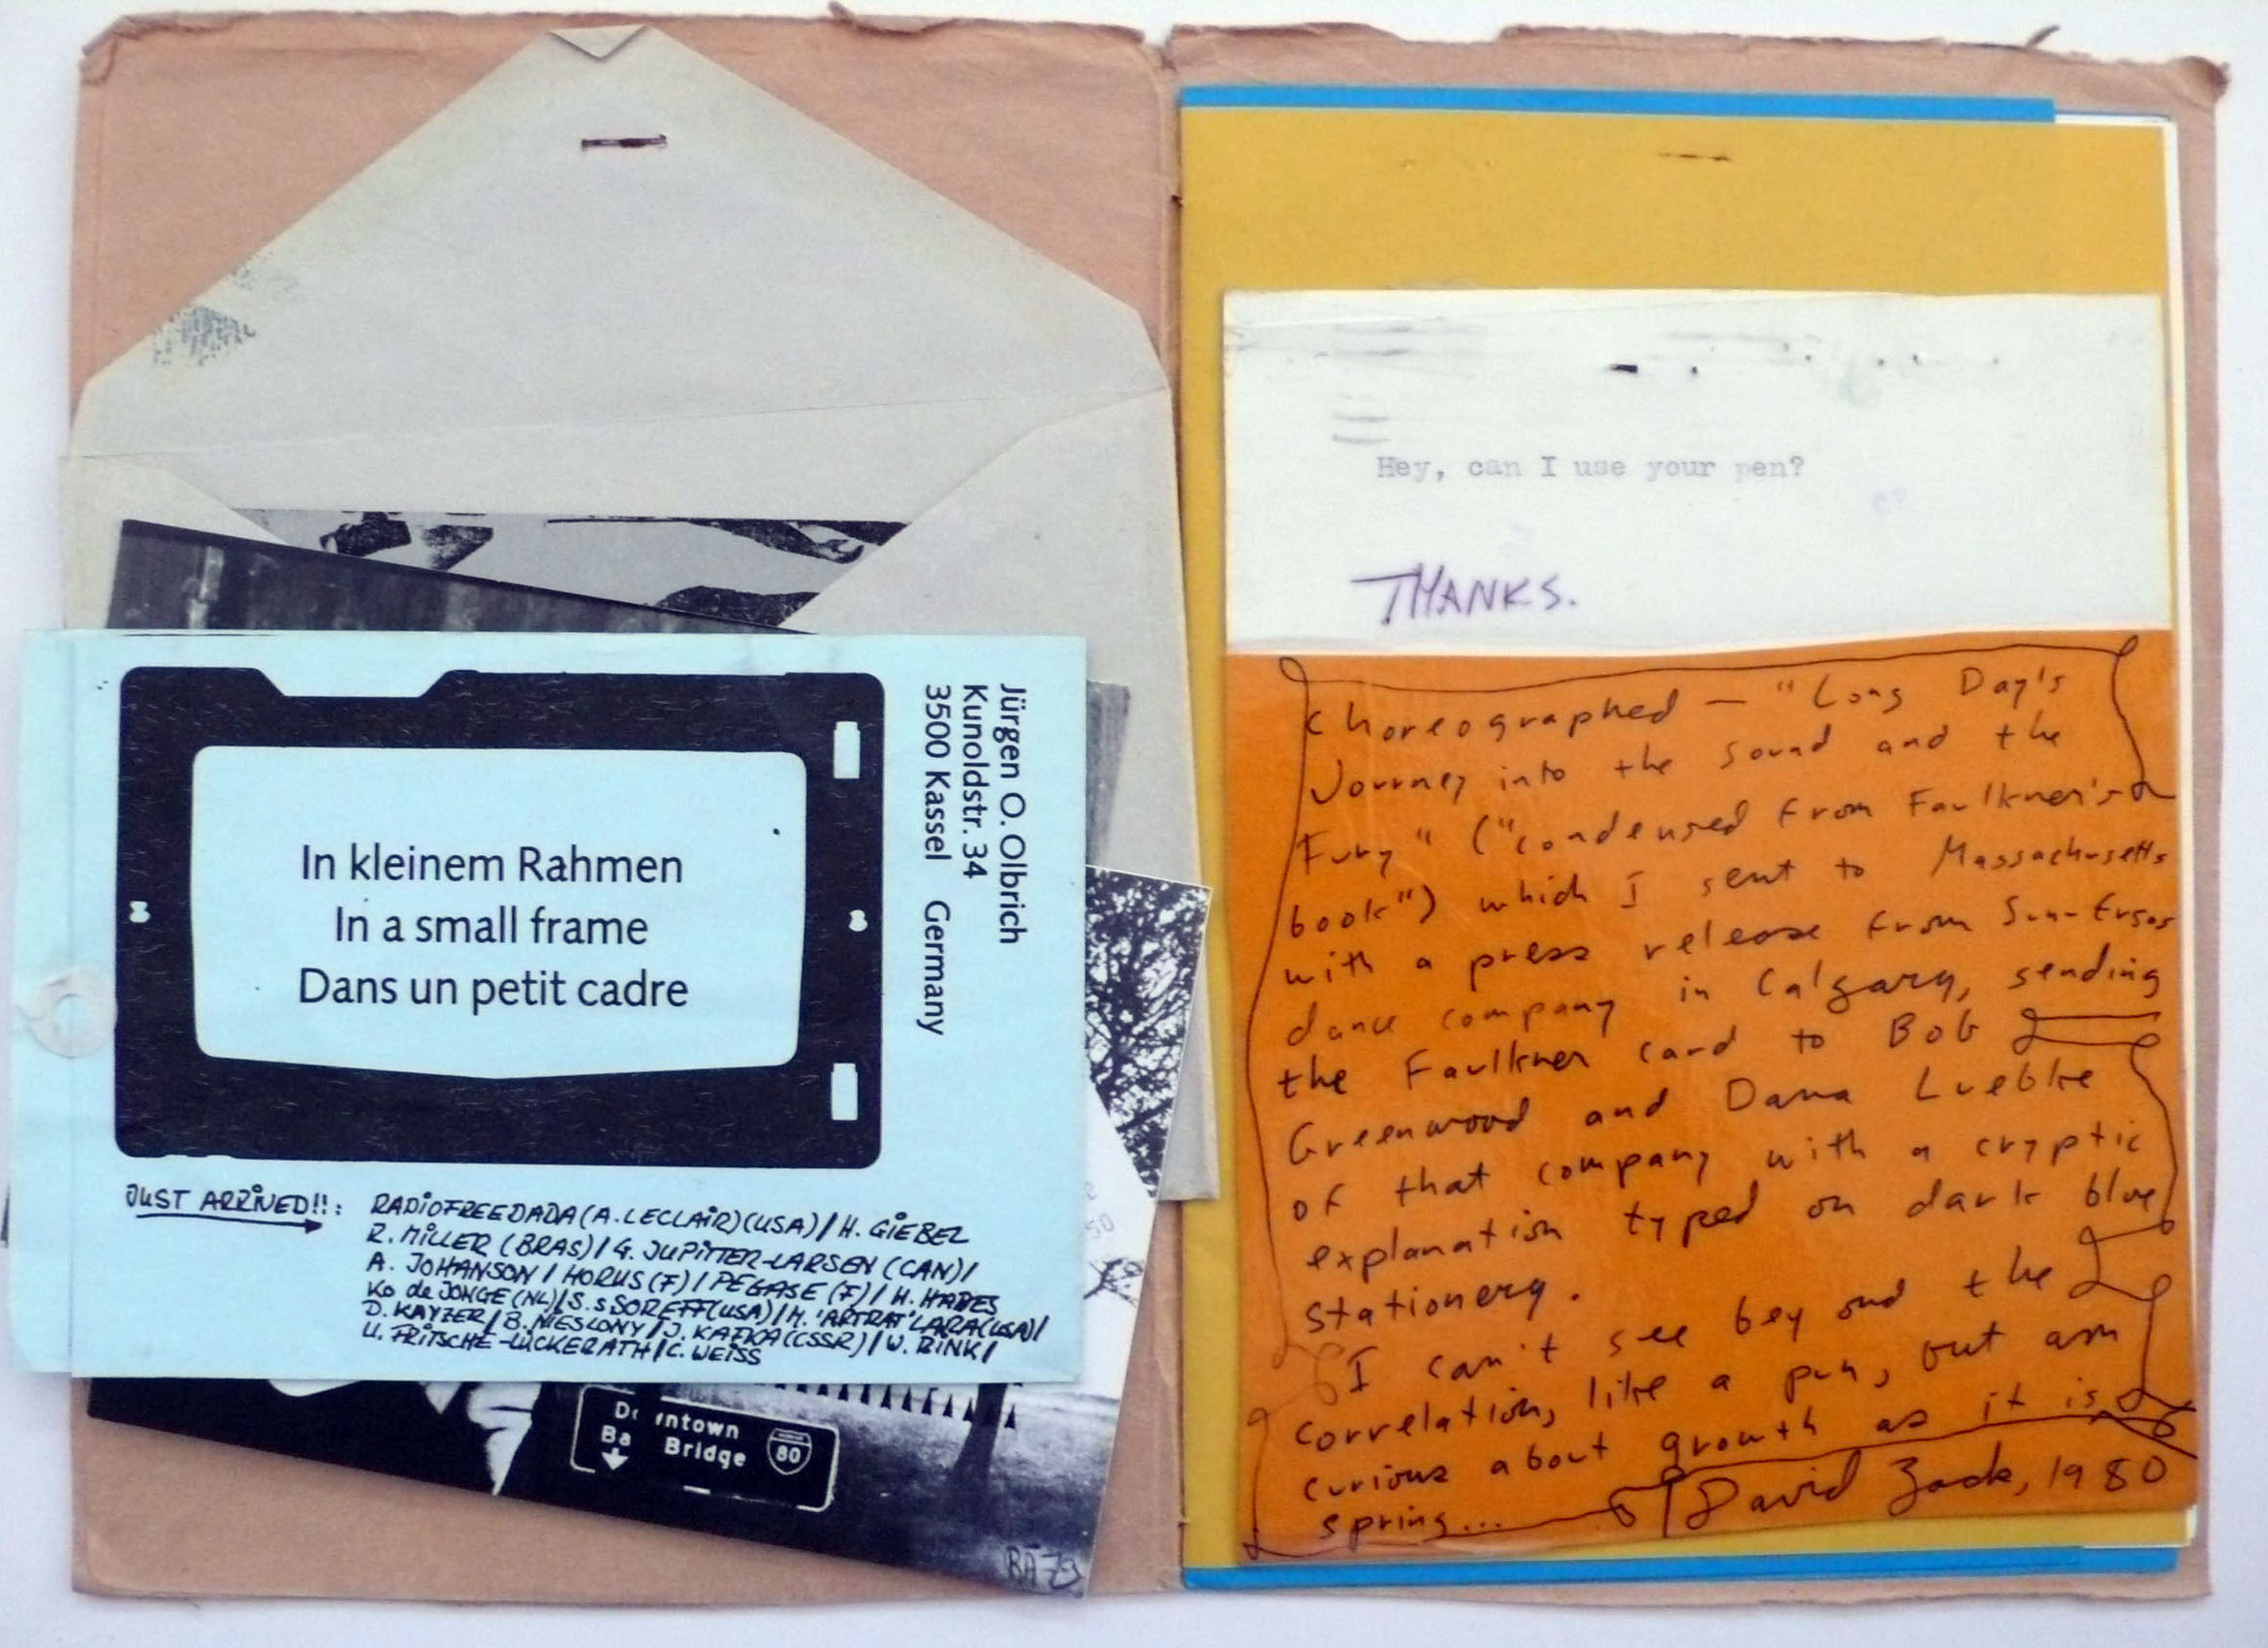 In kleinem Rahmen
In a small frame
Dans un petit cadre
Jürgen O. Olbrich
Kunoldstr. 34
3500 Kassel Germany
JUST ARRIVED!!:
RADIOFREEDADA (A. LECLAIR) (USA) / H. GIEBEL
R. MILLER (BRAS) / G. JUPITTER-LARSEN (CAN) /
A. JOHANSON / HORUS (F) / PEGASE (F) / H.
Ko de JONGE (NL) / S. s SOREFF (USA) / M. 'ARTRAT' LARA (USA) /
D. KAYZER / B. NIESLONY / J. KAFKA (CSSR) / W. RINK /
U. FRITSCHE-LÜCKERATH / C. WEISS
ntown
Ba Bridge 80
Hey, can I use your pen?
THANKS.
Choreographed — "Long Day's
Journey into the Sound and the
Fury" ("condensed from Faulkner's
book") which I sent to Massachusetts
with a press release from Sun-Ergos
dance company in Calgary, sending
the Faulkner card to Bob
Greenwood and Dana Luebke
of that company with a cryptic
explanation typed on dark blue
stationery.
I can't see beyond the
correlation, like a pen, but am
curious about growth as it is
spring...
David Zack, 1980